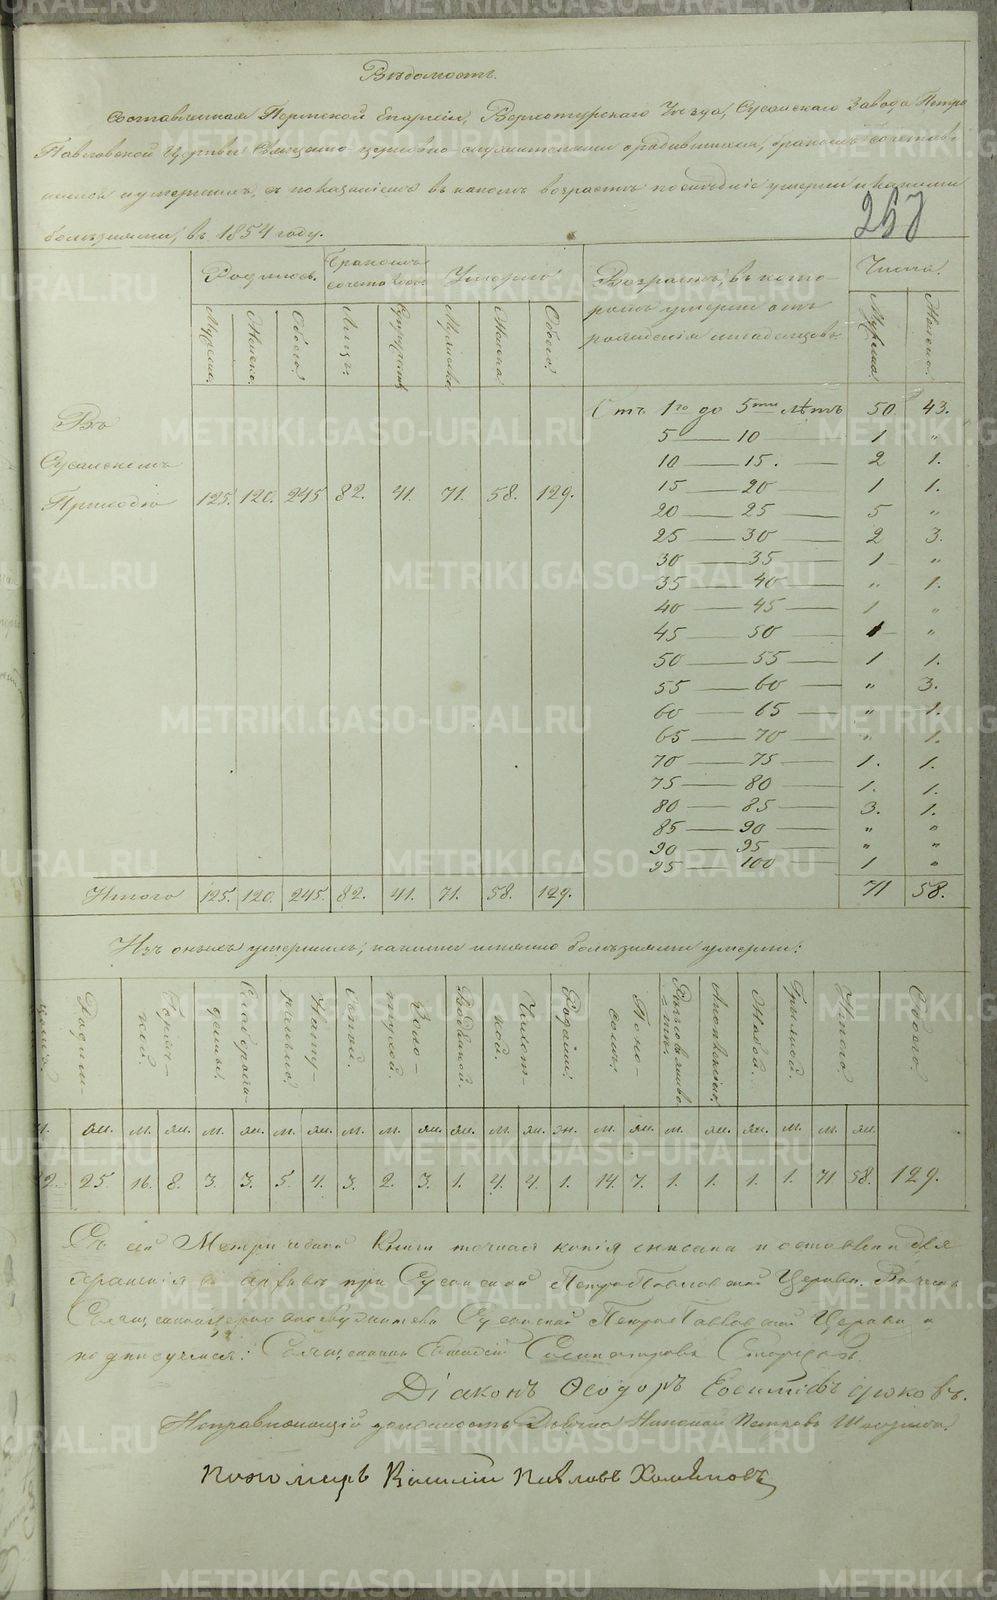 Вѣдомость
составленная Пермской Епархіи, Верхотурскаго Уѣзда, Сусанскаго Завода Петро
Павловской Церкви Священно церковно служителями о родившихся, бракомъ сочетав
шихся и умершихъ, съ показаніемъ въ какомъ возрастѣ послѣдніе умерли и какими
болѣзнями, въ 1854 году.
267
Родилось. Бракомъ сочеталось Умерло Возрастъ, въ кото- Числа.
ромъ умерли отъ
рожденія младенцовъ.
Мужеска. Женска. Обоего. Лицъ. Супружествъ Мужеска Женска Обоего. Мужска. Женска.
Въ
Сусанскомъ
Приходѣ 125. 120. 245 82. 41. 71. 58. 129.
Отъ 1го до 5ти лѣтъ 50. 43.
5 — 10 1 "
10 — 15. 2 1.
15 — 20 1 1.
20 — 25 5 "
25 — 30 2 3.
30 — 35 1 "
35 — 40 " 1.
40 — 45 1 "
45 — 50 1 "
50 — 55 1 1.
55 — 60 " 3.
60 — 65 " 1.
65 — 70 " 1.
70 — 75 1. 1.
75 — 80 1. 1.
80 — 85 3. 1.
85 — 90 " "
90 — 95 " "
95 — 100 1 "
Итого 125. 120. 245. 82. 41. 71. 58. 129. 71 58.
Изъ оныхъ умершихъ, какими именно болѣзнями умерли:
Родим- Горяч-кой. Натурально. Водяной. Чахот-кой. Родами. Поно-сомъ. Итого. Обоего.
м. ж. м. ж. м. ж. м. м. ж. ж. м. ж. ж. м. ж. м. ж. ж. м. м. ж.
25 16. 8. 3. 3. 5. 4. 3. 2. 3. 1. 4. 4. 1. 14. 7. 1. 1. 1. 1. 71 58. 129.
Съ сей Метрической Книги точная копія списана и оставлена для
храненія въ архивѣ при Сусанской Петро Павловской Церкви. Въ чемъ
Сусанской Петро Павловской Церкви и
подписуемся: Священникъ
Діаконъ Ѳеодоръ
Исправляющій должность Дьячка Николай Петровъ
Пономарь Василій Павловъ
METRIKI.GASO-URAL.RU